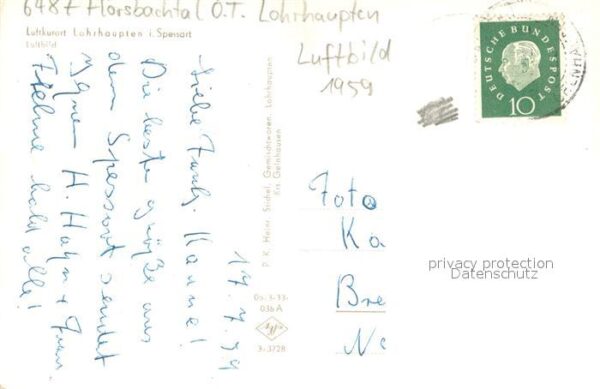 6487 Flörsbachtal O.T. Lohrhaupten
Luftkurort Lohrhaupten i. Spessart
Luftbild
Luftbild
1959
DEUTSCHE BUNDESPOST
10
17.7.59
Liebe Famlg. Kanne!
Die besten Grüße aus
dem Spessart sendet
H. Hahn + Frau
bald alle!
P. K. Heinr. Sichel, Gemischtwaren, Lohrhaupten
Krs. Gelnhausen
Do-3-33-
036 A
Agfa
3:3728
Foto
Ka
Bre
Ne
privacy protection
Datenschutz